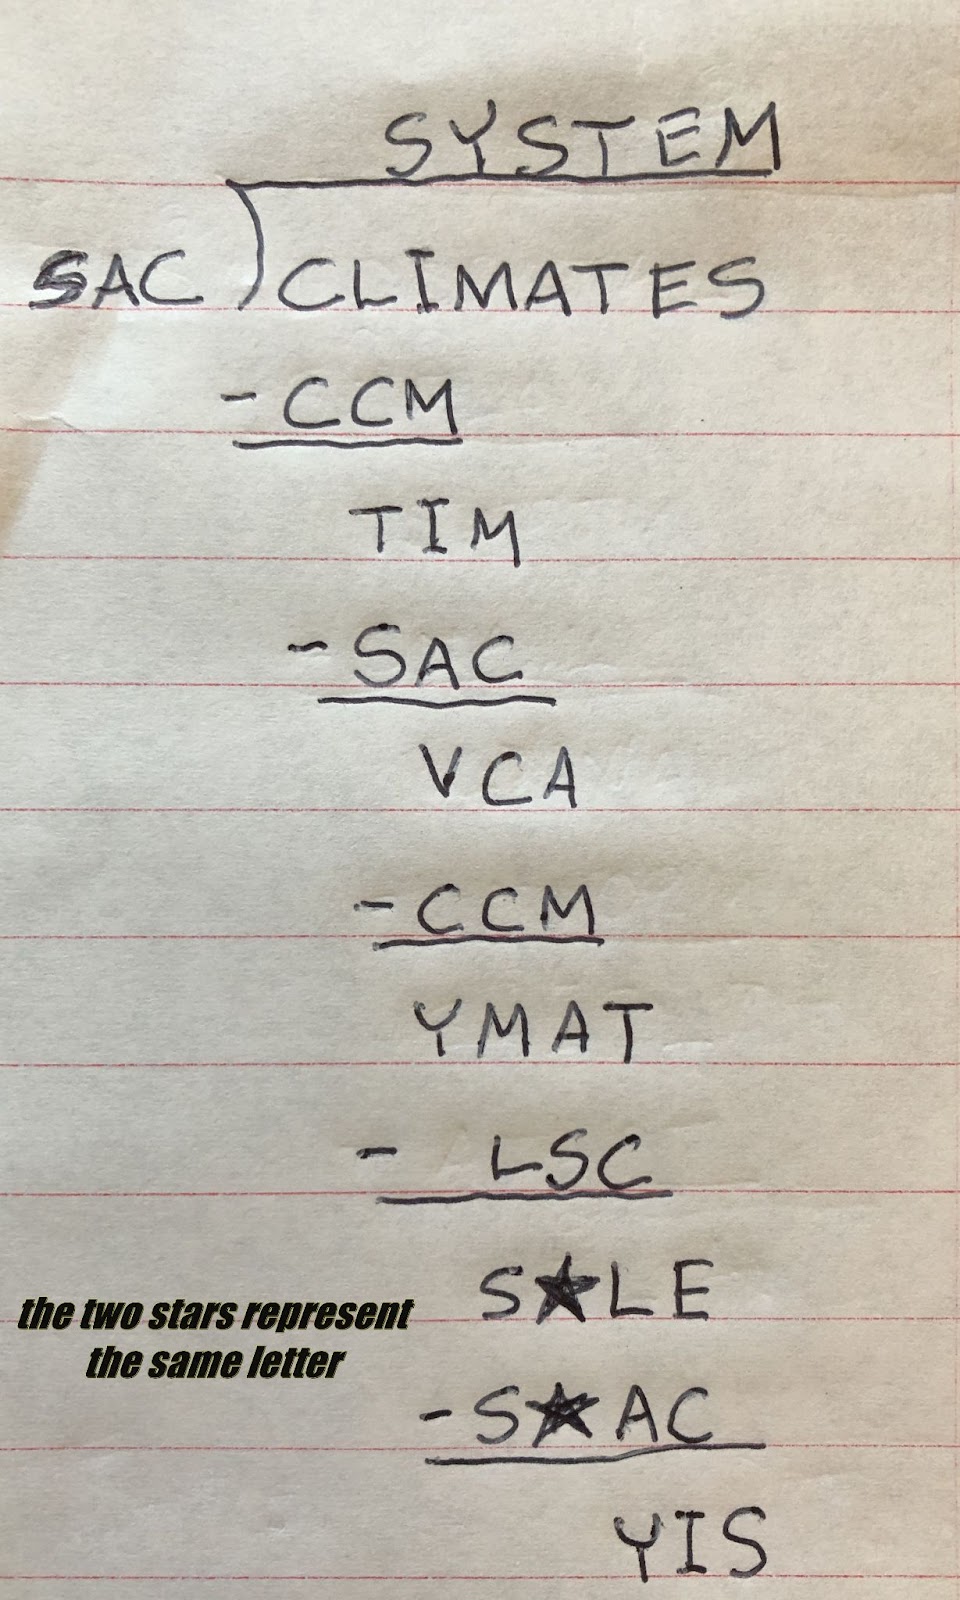 SYSTEM
SAC CLIMATES
- CCM
TIM
- SAC
VCA
- CCM
YMAT
- LSC
S★LE
- S★AC
YIS
the two stars represent
the same letter